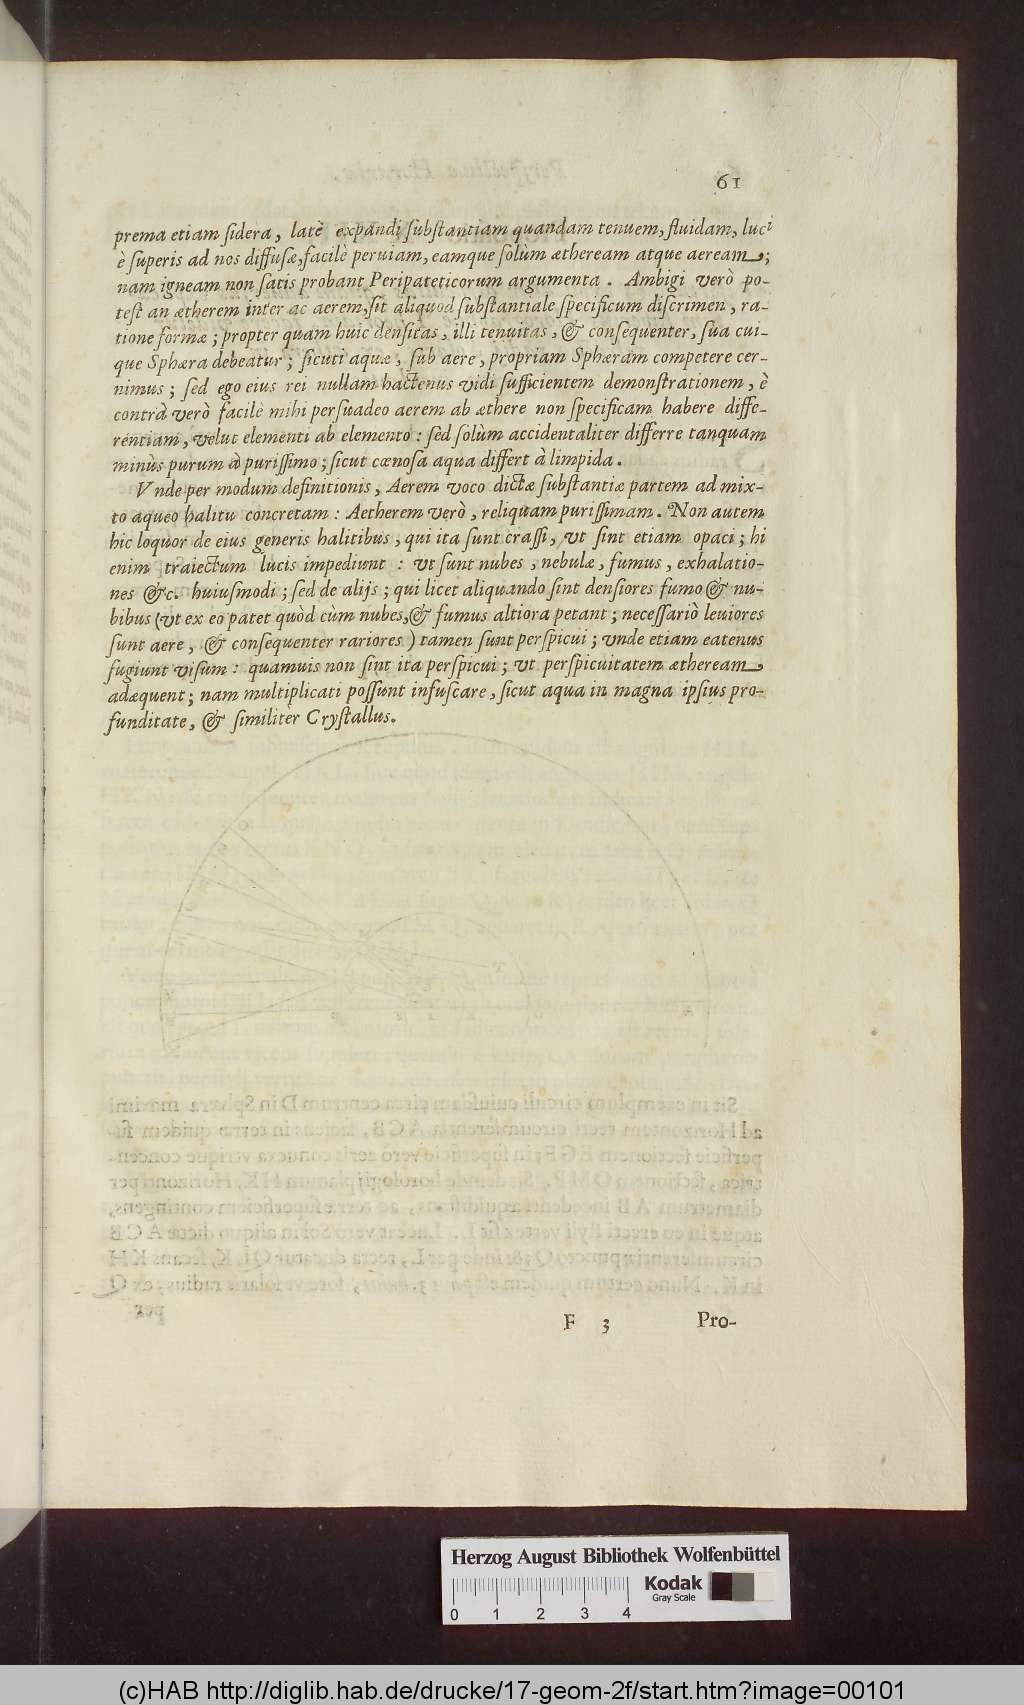 61
prema etiam sidera, latè expandi substantiam quandam tenuem, fluidam, luci
è superis ad nos diffusæ, facilè peruiam, eamque solùm ætheream atque aeream;
nam igneam non satis probant Peripateticorum argumenta. Ambigi verò po-
test an ætherem inter ac aerem, sit aliquod substantiale specificum discrimen, ra-
tione formæ; propter quam huic densitas, illi tenuitas, & consequenter, sua cui-
que Sphæra debeatur; sicuti aquæ, sub aere, propriam Sphæram competere cer-
nimus; sed ego eius rei nullam hactenus vidi sufficientem demonstrationem, è
contrà verò facilè mihi persuadeo aerem ab æthere non specificam habere diffe-
rentiam, velut elementi ab elemento: sed solùm accidentaliter differre tanquam
minùs purum à purissimo; sicut cœnosa aqua differt à limpida.
Vnde per modum definitionis, Aerem voco dictæ substantiæ partem ad mix-
to aqueo halitu concretam: Aetherem verò, reliquam purissimam. Non autem
hic loquor de eius generis halitibus, qui ita sunt crassi, vt sint etiam opaci; hi
enim traiectum lucis impediunt: vt sunt nubes, nebulæ, fumus, exhalatio-
nes &c. huiusmodi; sed de alijs; qui licet aliquando sint densiores fumo & nu-
bibus (vt ex eo patet quòd cùm nubes, & fumus altiora petant; necessariò leuiores
sunt aere, & consequenter rariores) tamen sunt perspicui; vnde etiam eatenus
fugiunt visum: quamuis non sint ita perspicui; vt perspicuitatem ætheream
adæquent; nam multiplicati possunt infuscare, sicut aqua in magna ipsius pro-
funditate, & similiter Crystallus.
F 3 Pro-
Herzog August Bibliothek Wolfenbüttel
Kodak
Gray Scale
0 1 2 3 4
(c)HAB http://diglib.hab.de/drucke/17-geom-2f/start.htm?image=00101